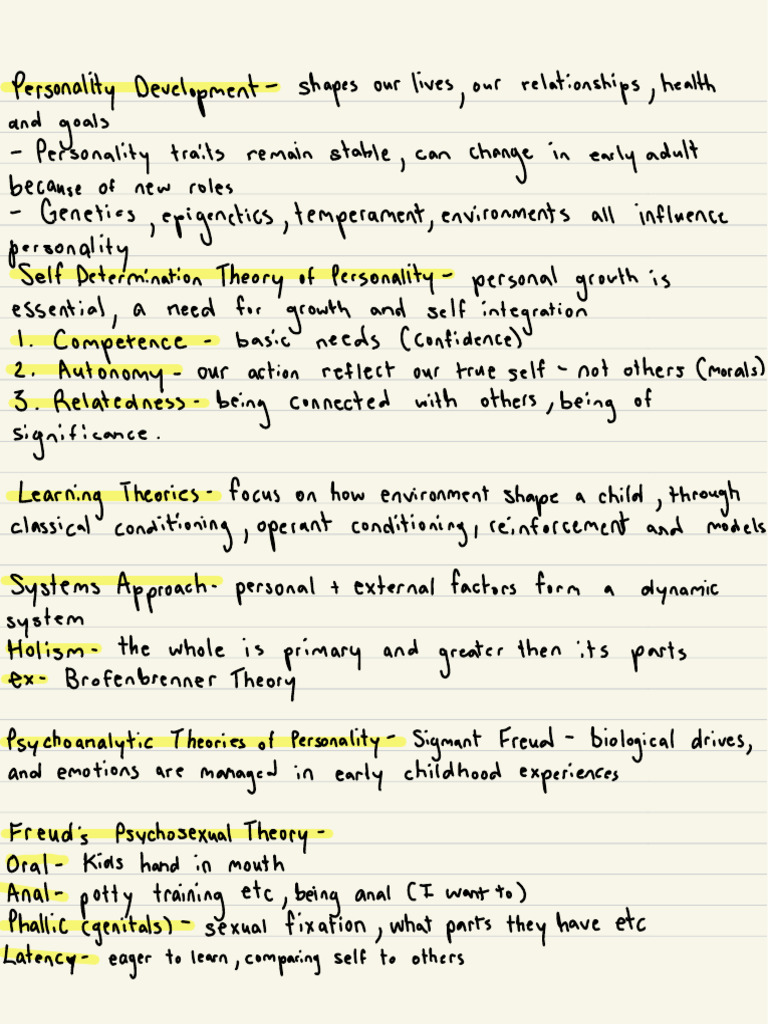 Personality Development - shapes our lives, our relationships, health
and goals
- Personality traits remain stable, can change in early adult
because of new roles
- Genetics, epigenetics, temperament, environments all influence
personality
Self Determination Theory of Personality - personal growth is
essential, a need for growth and self integration
1. Competence - basic needs (confidence)
2. Autonomy - our action reflect our true self - not others (morals)
3. Relatedness - being connected with others, being of
significance.
Learning Theories - focus on how environment shape a child, through
classical conditioning, operant conditioning, reinforcement and models
Systems Approach - personal + external factors form a dynamic
system
Holism - the whole is primary and greater then its parts
ex - Brofenbrenner Theory
Psychoanalytic Theories of Personality - Sigmant Freud - biological drives,
and emotions are managed in early childhood experiences
Freud's Psychosexual Theory -
Oral - Kids hand in mouth
Anal - potty training etc, being anal (I want to)
Phallic (genitals) - sexual fixation, what parts they have etc
Latency - eager to learn, comparing self to others